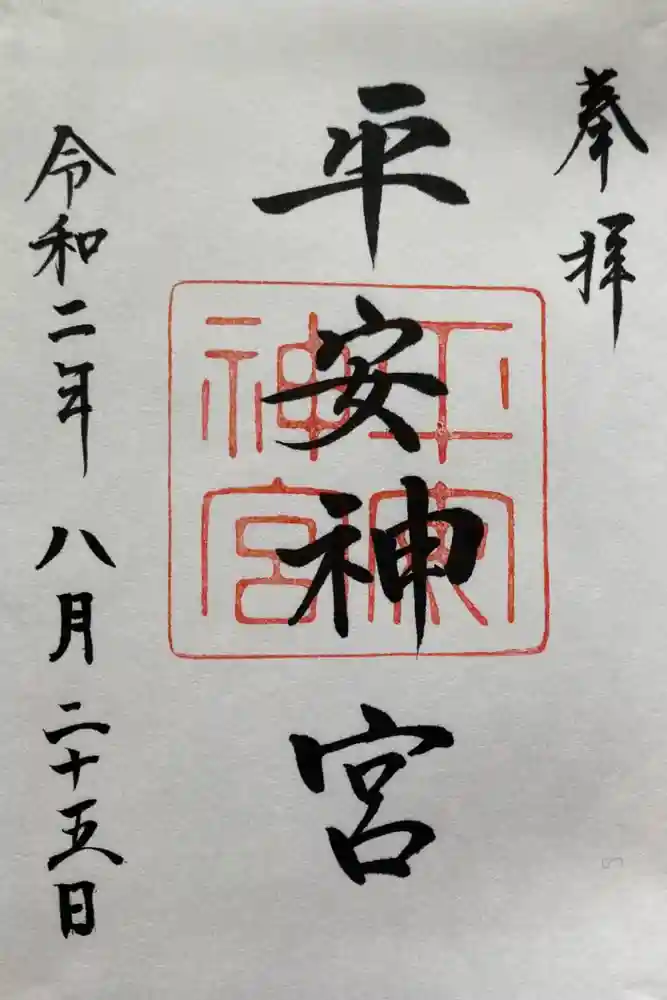 奉拝
平安神宮
平安神宮
令和二年 八月 二十五日